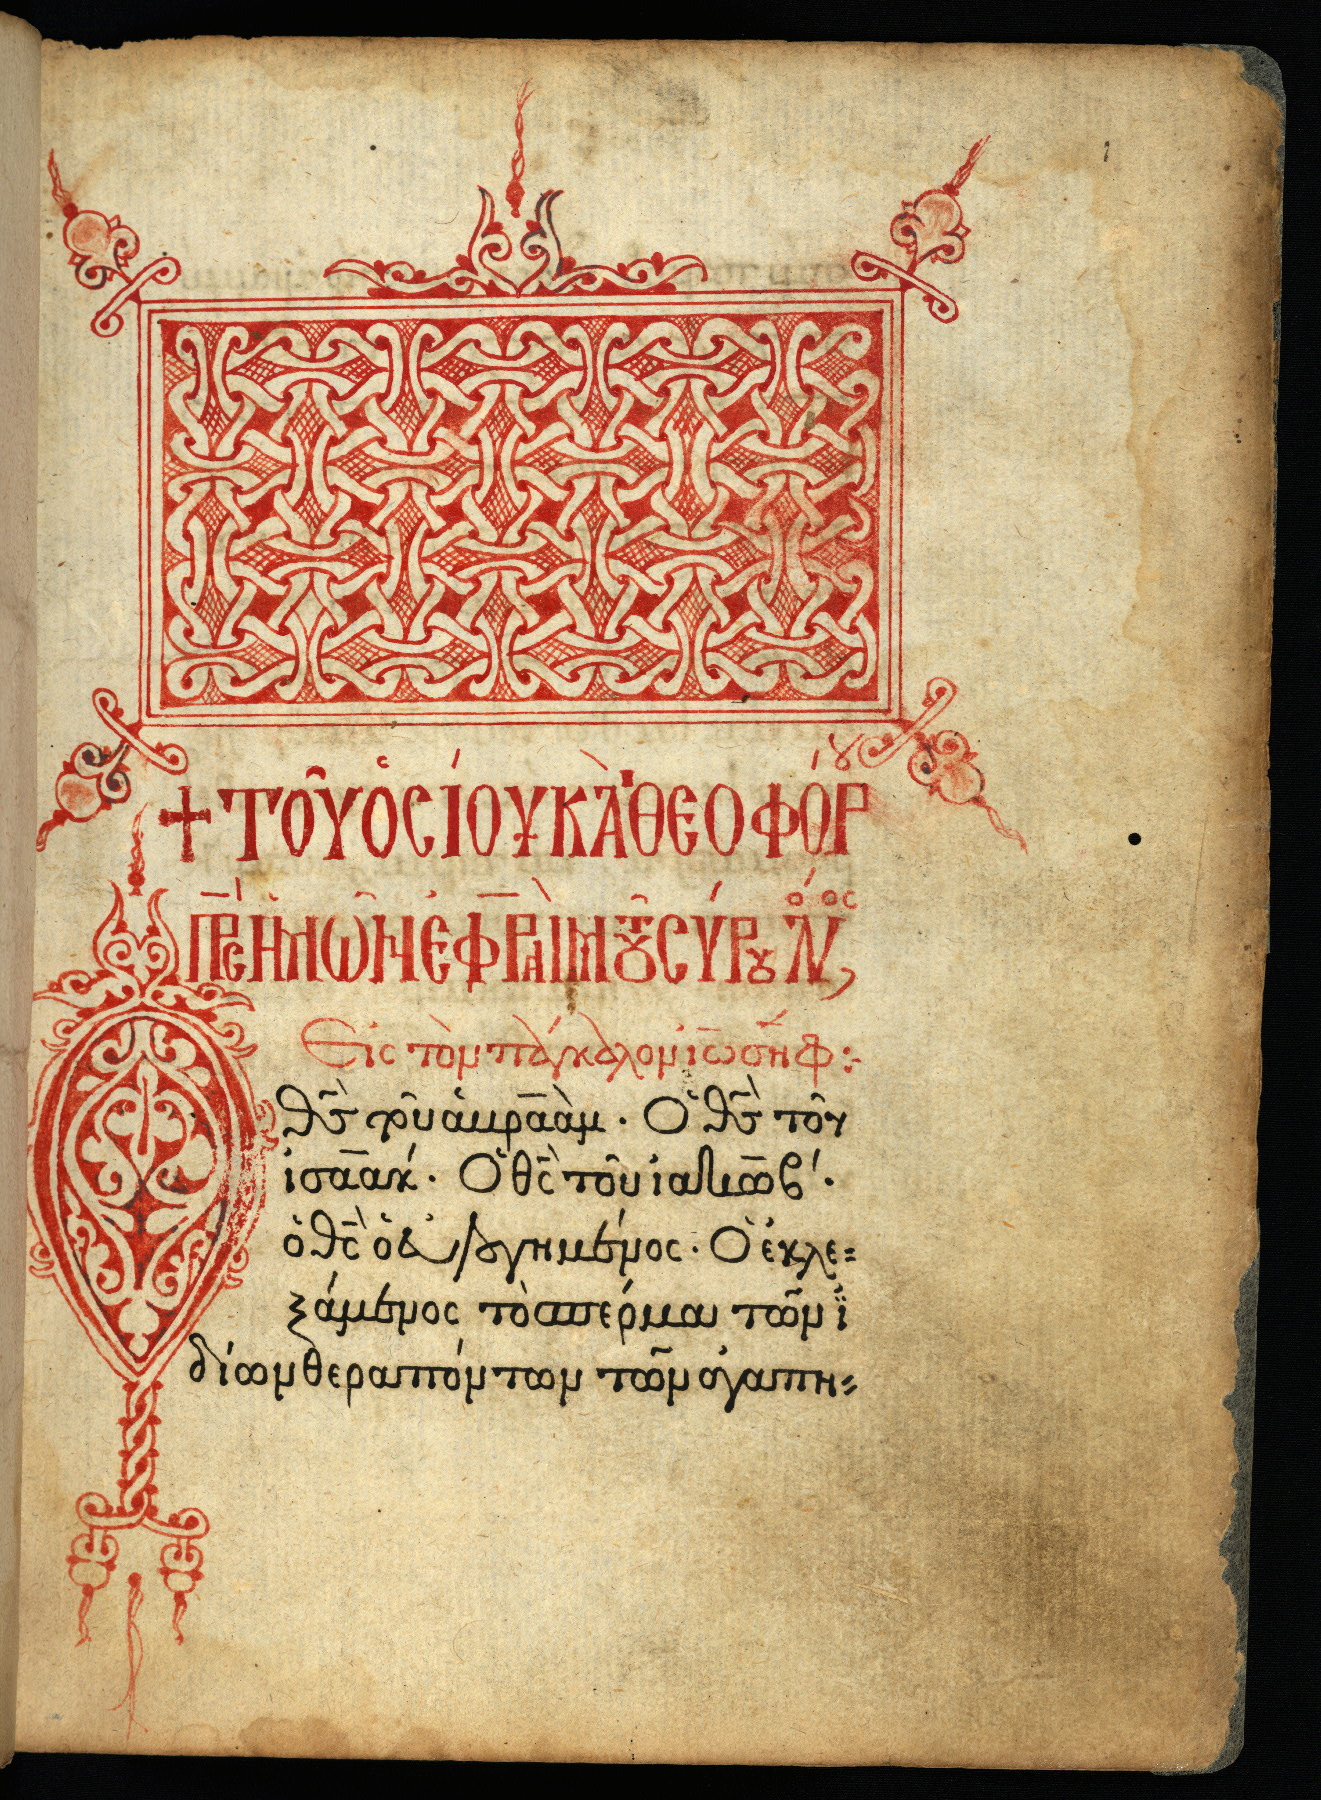 + ΤΟῦ ὉΣΊΟΥ Κ(Αὶ) ΘΕΟΦΌΡΟΥ
Π(ΑΤ)Ρ(Ὸ)Σ ἩΜῶΝ ἘΦΡΑῚΜ ΤΟῦ ΣΎΡΟΥ ΛΌΓΟΣ,
Εἰς τὸν πάγκαλον ἰωσὴφ :·
θ̅ς̅ τοῦ ἀβραὰμ · Ὁ θ̅ς̅ τοῦ
ἰσαάκ · Ὁ θ̅ς̅ τοῦ ἰακώβ ·
ὁ θ̅ς̅ ὁ εὐλογημένος · Ὁ ἐκλε=
ξάμενος τὸ σπέρμα τῶν ἰ
δίων θεραπόντων τῶν ἀγαπη=